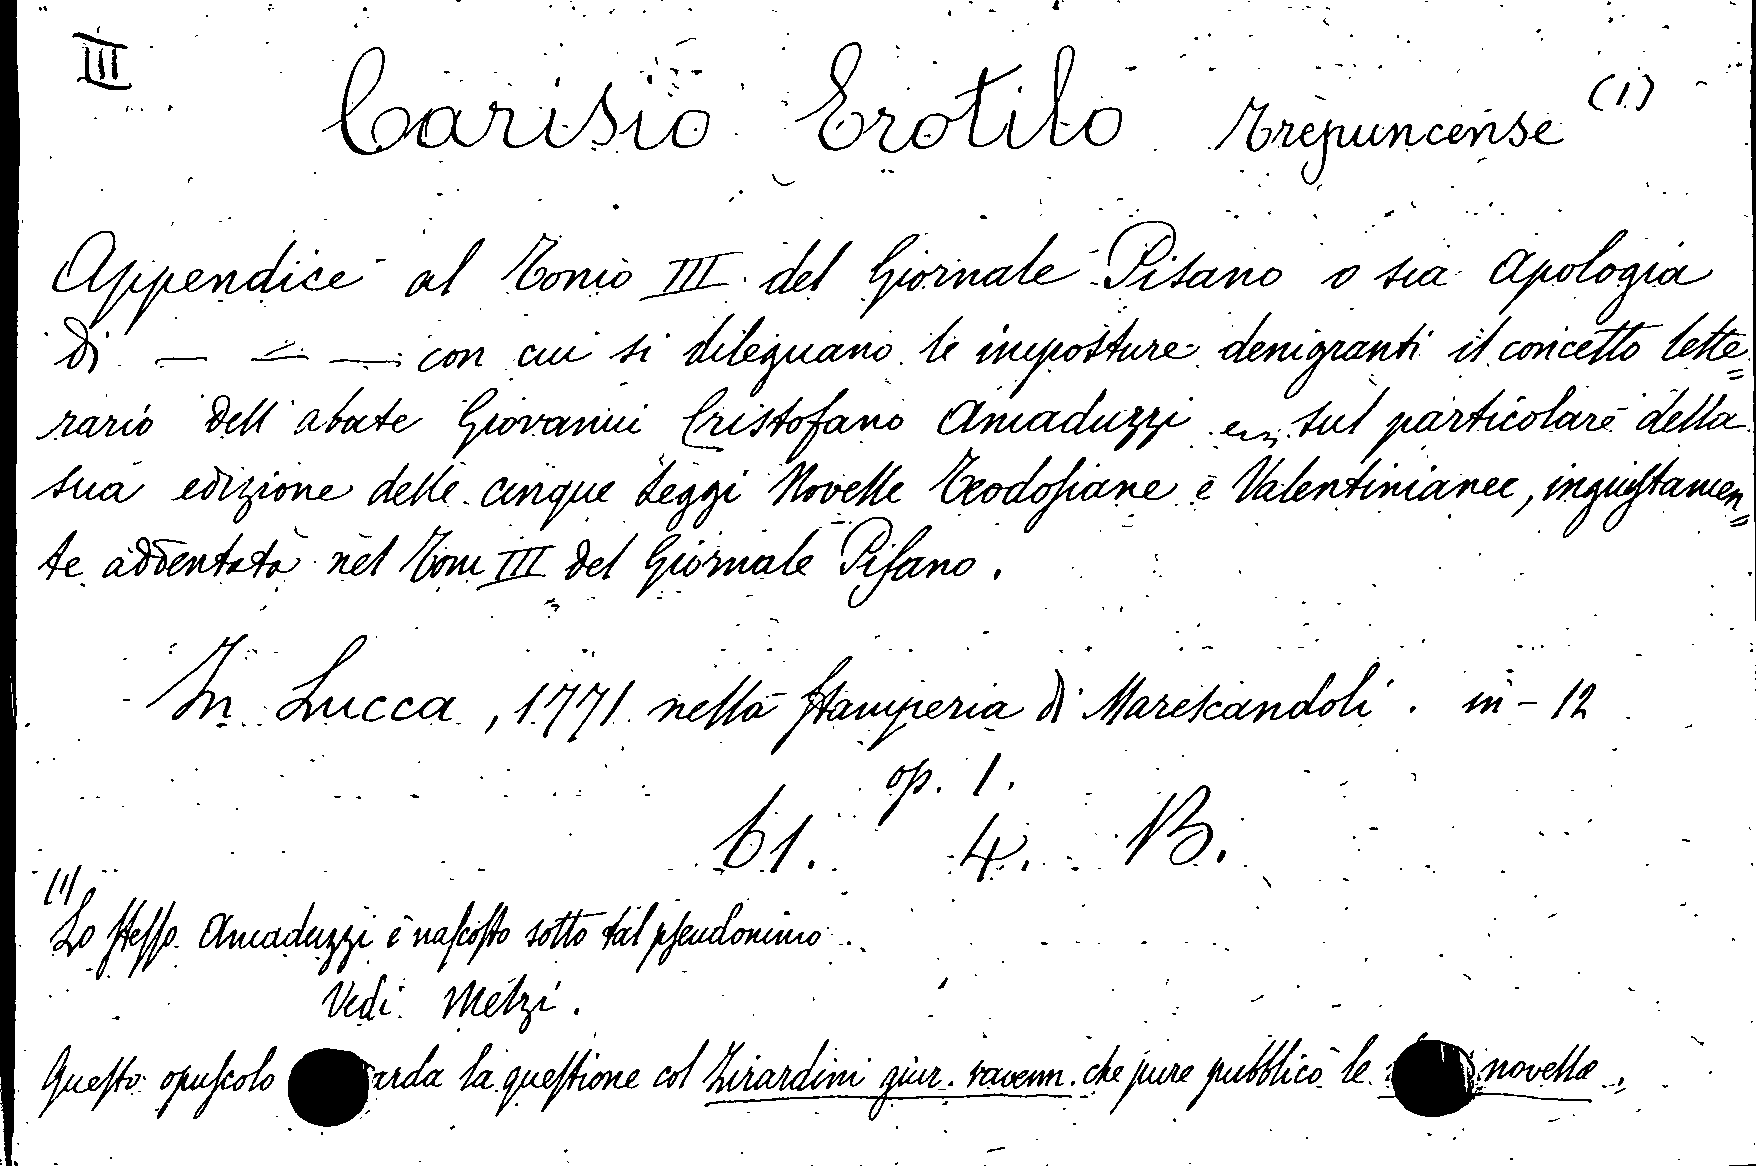 III
Carisio Erotilo Trepuncense (1)
Appendice al Tomo III del Giornale Pisano o sia Apologia
di — — — con cui si dileguano le imposture denigranti il concetto lette=
rario dell'abate Giovanni Cristofano Amaduzzi sul particolare della
sua edizione delle cinque Leggi Novelle Teodosiane e Valentinianee, ingiustamen=
te addentata nel Tom III del Giornale Pisano.
In Lucca, 1771 nella stamperia di Marescandoli. in-12
op. 1.
61. 4. B.
(1)
Lo stesso Amaduzzi è nascosto sotto tal pseudonimo.
Vedi Melzi.
Questo opuscolo arda la questione col Zirardini giur. ravenn. che pure pubblicò le novelle.